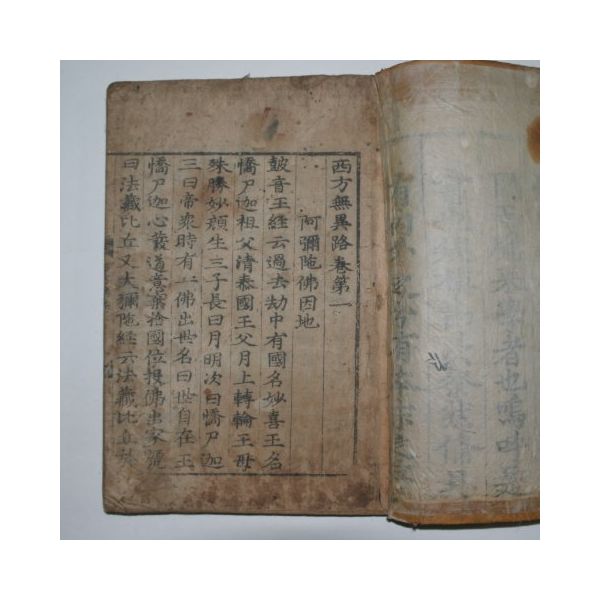 者也嗚呼是
西方無異路卷第一
阿彌陁佛因地
皷音王経云過去劫中有國名妙喜王名
憍尸迦祖父清泰國王父月上轉輪王母
殊勝妙顔生三子長曰月明次曰憍尸迦
三曰帝衆時有一佛出世名曰世自在王
憍尸迦心發道意棄捨國位投佛出家號
曰法藏比丘又大彌陁経云法藏比丘於